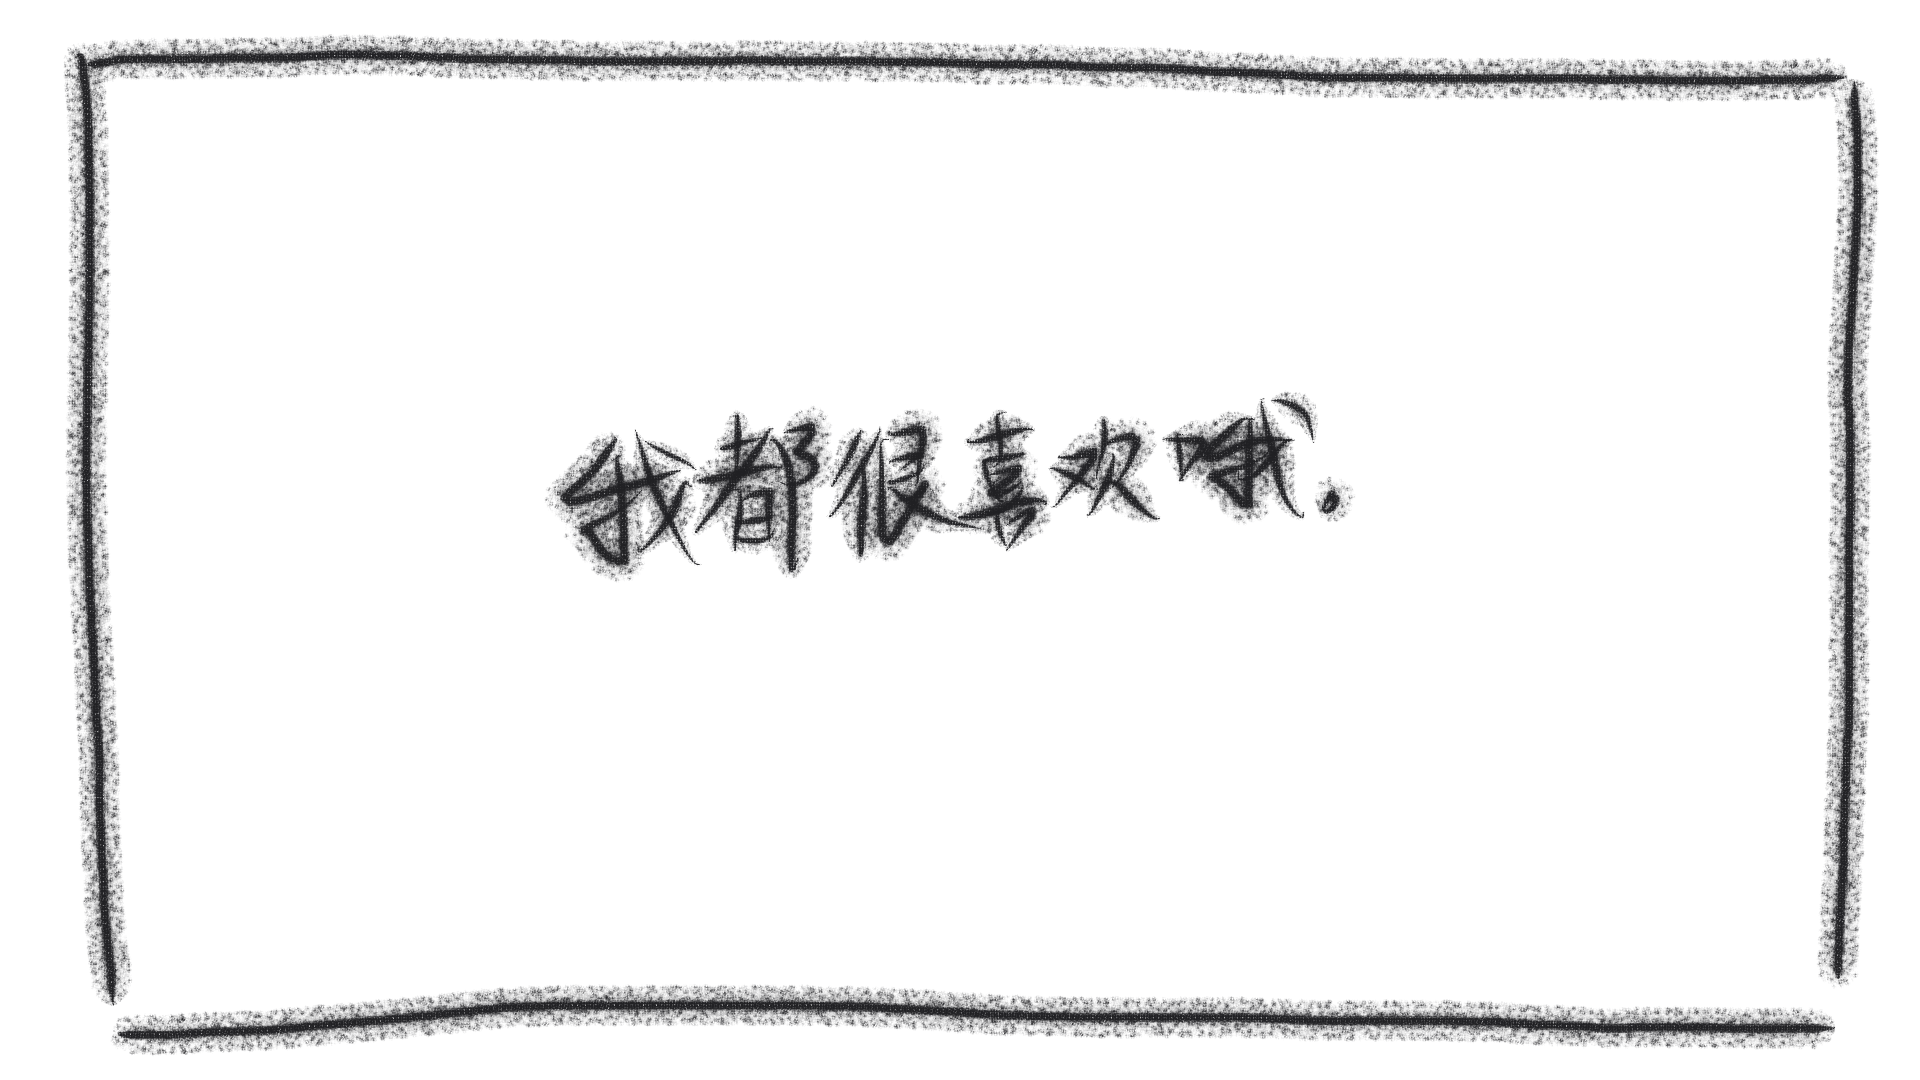 我都很喜欢哦.